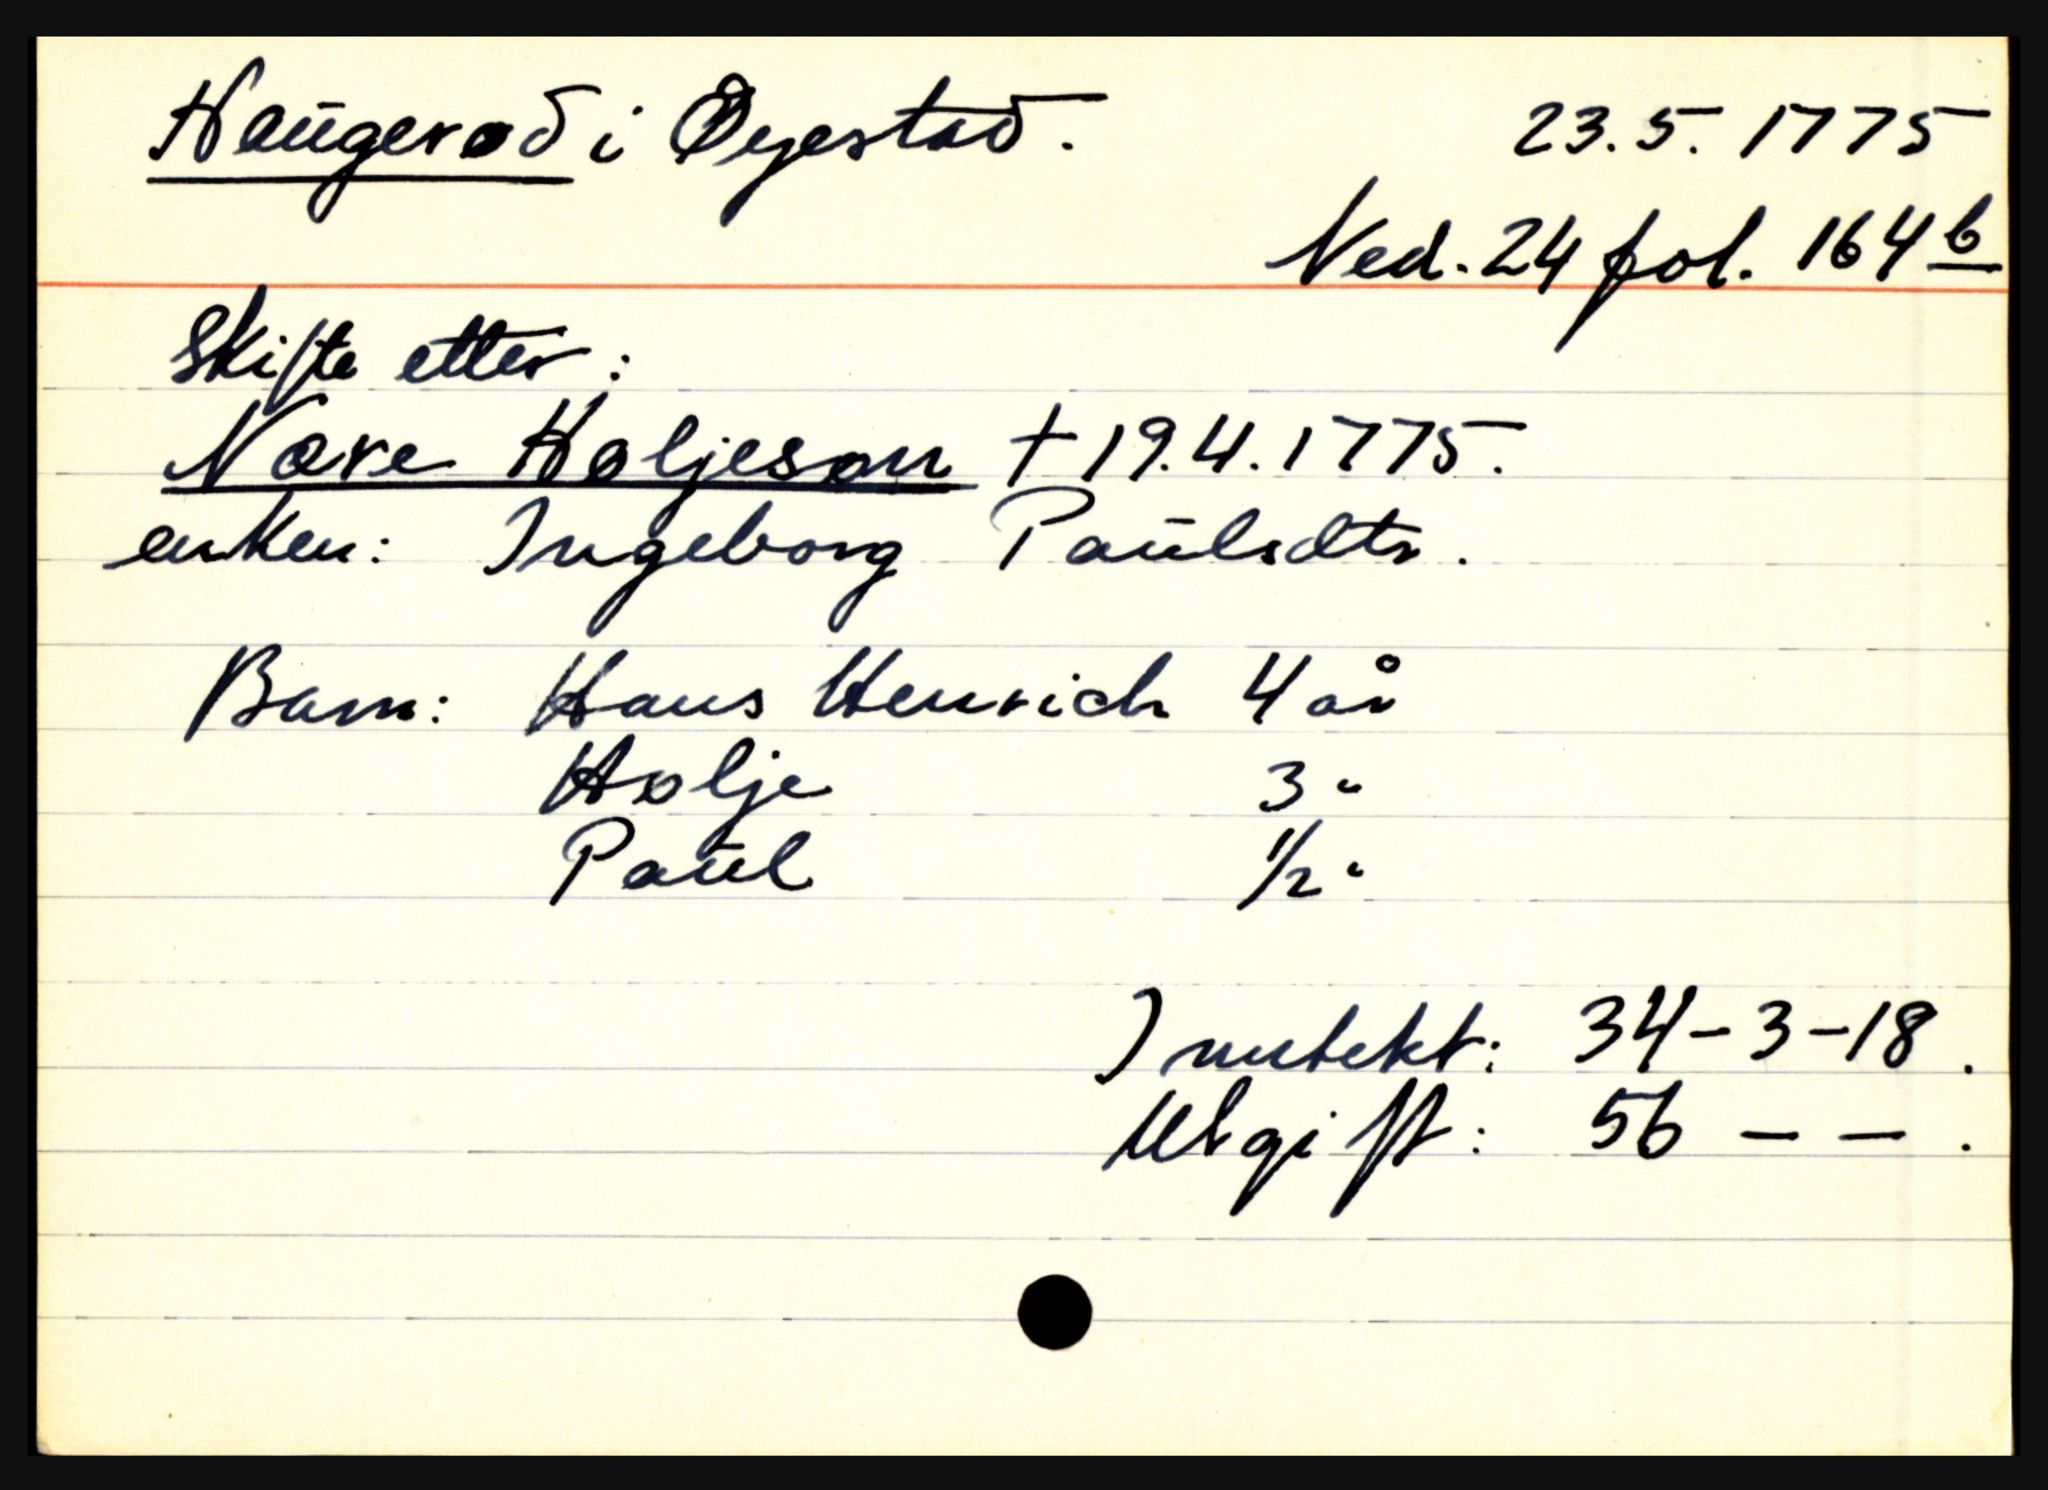 Haugerød i Øyestad. 23.5.1775
Ned. 24 fol. 164 b
Skifte etter:
Nære Holjesøn † 19.4.1775.
enken: Ingeborg Paulsdtr.
Barn: Hans Henrich 4 år
Holje 3 "
Paul 1/2 "
Inntekt: 34-3-18.
Utgift: 56 - - .